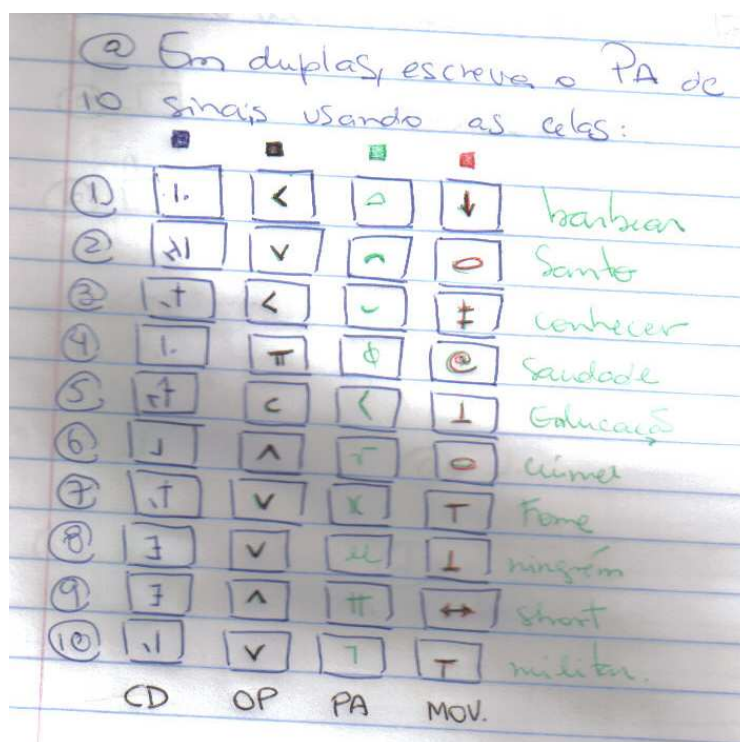 @ Em duplas, escreva o PA de
10 sinais usando as celas:
1 < ↓ barbear
2 v santo
3 < ‡ conhecer
4 @ saudade
5 c < ⊥ Educação
6 ^
7 v x T Fome
8 v ⊥ ninguém
9 ^ ↔ short
10 v T militar.
CD OP PA MOV.